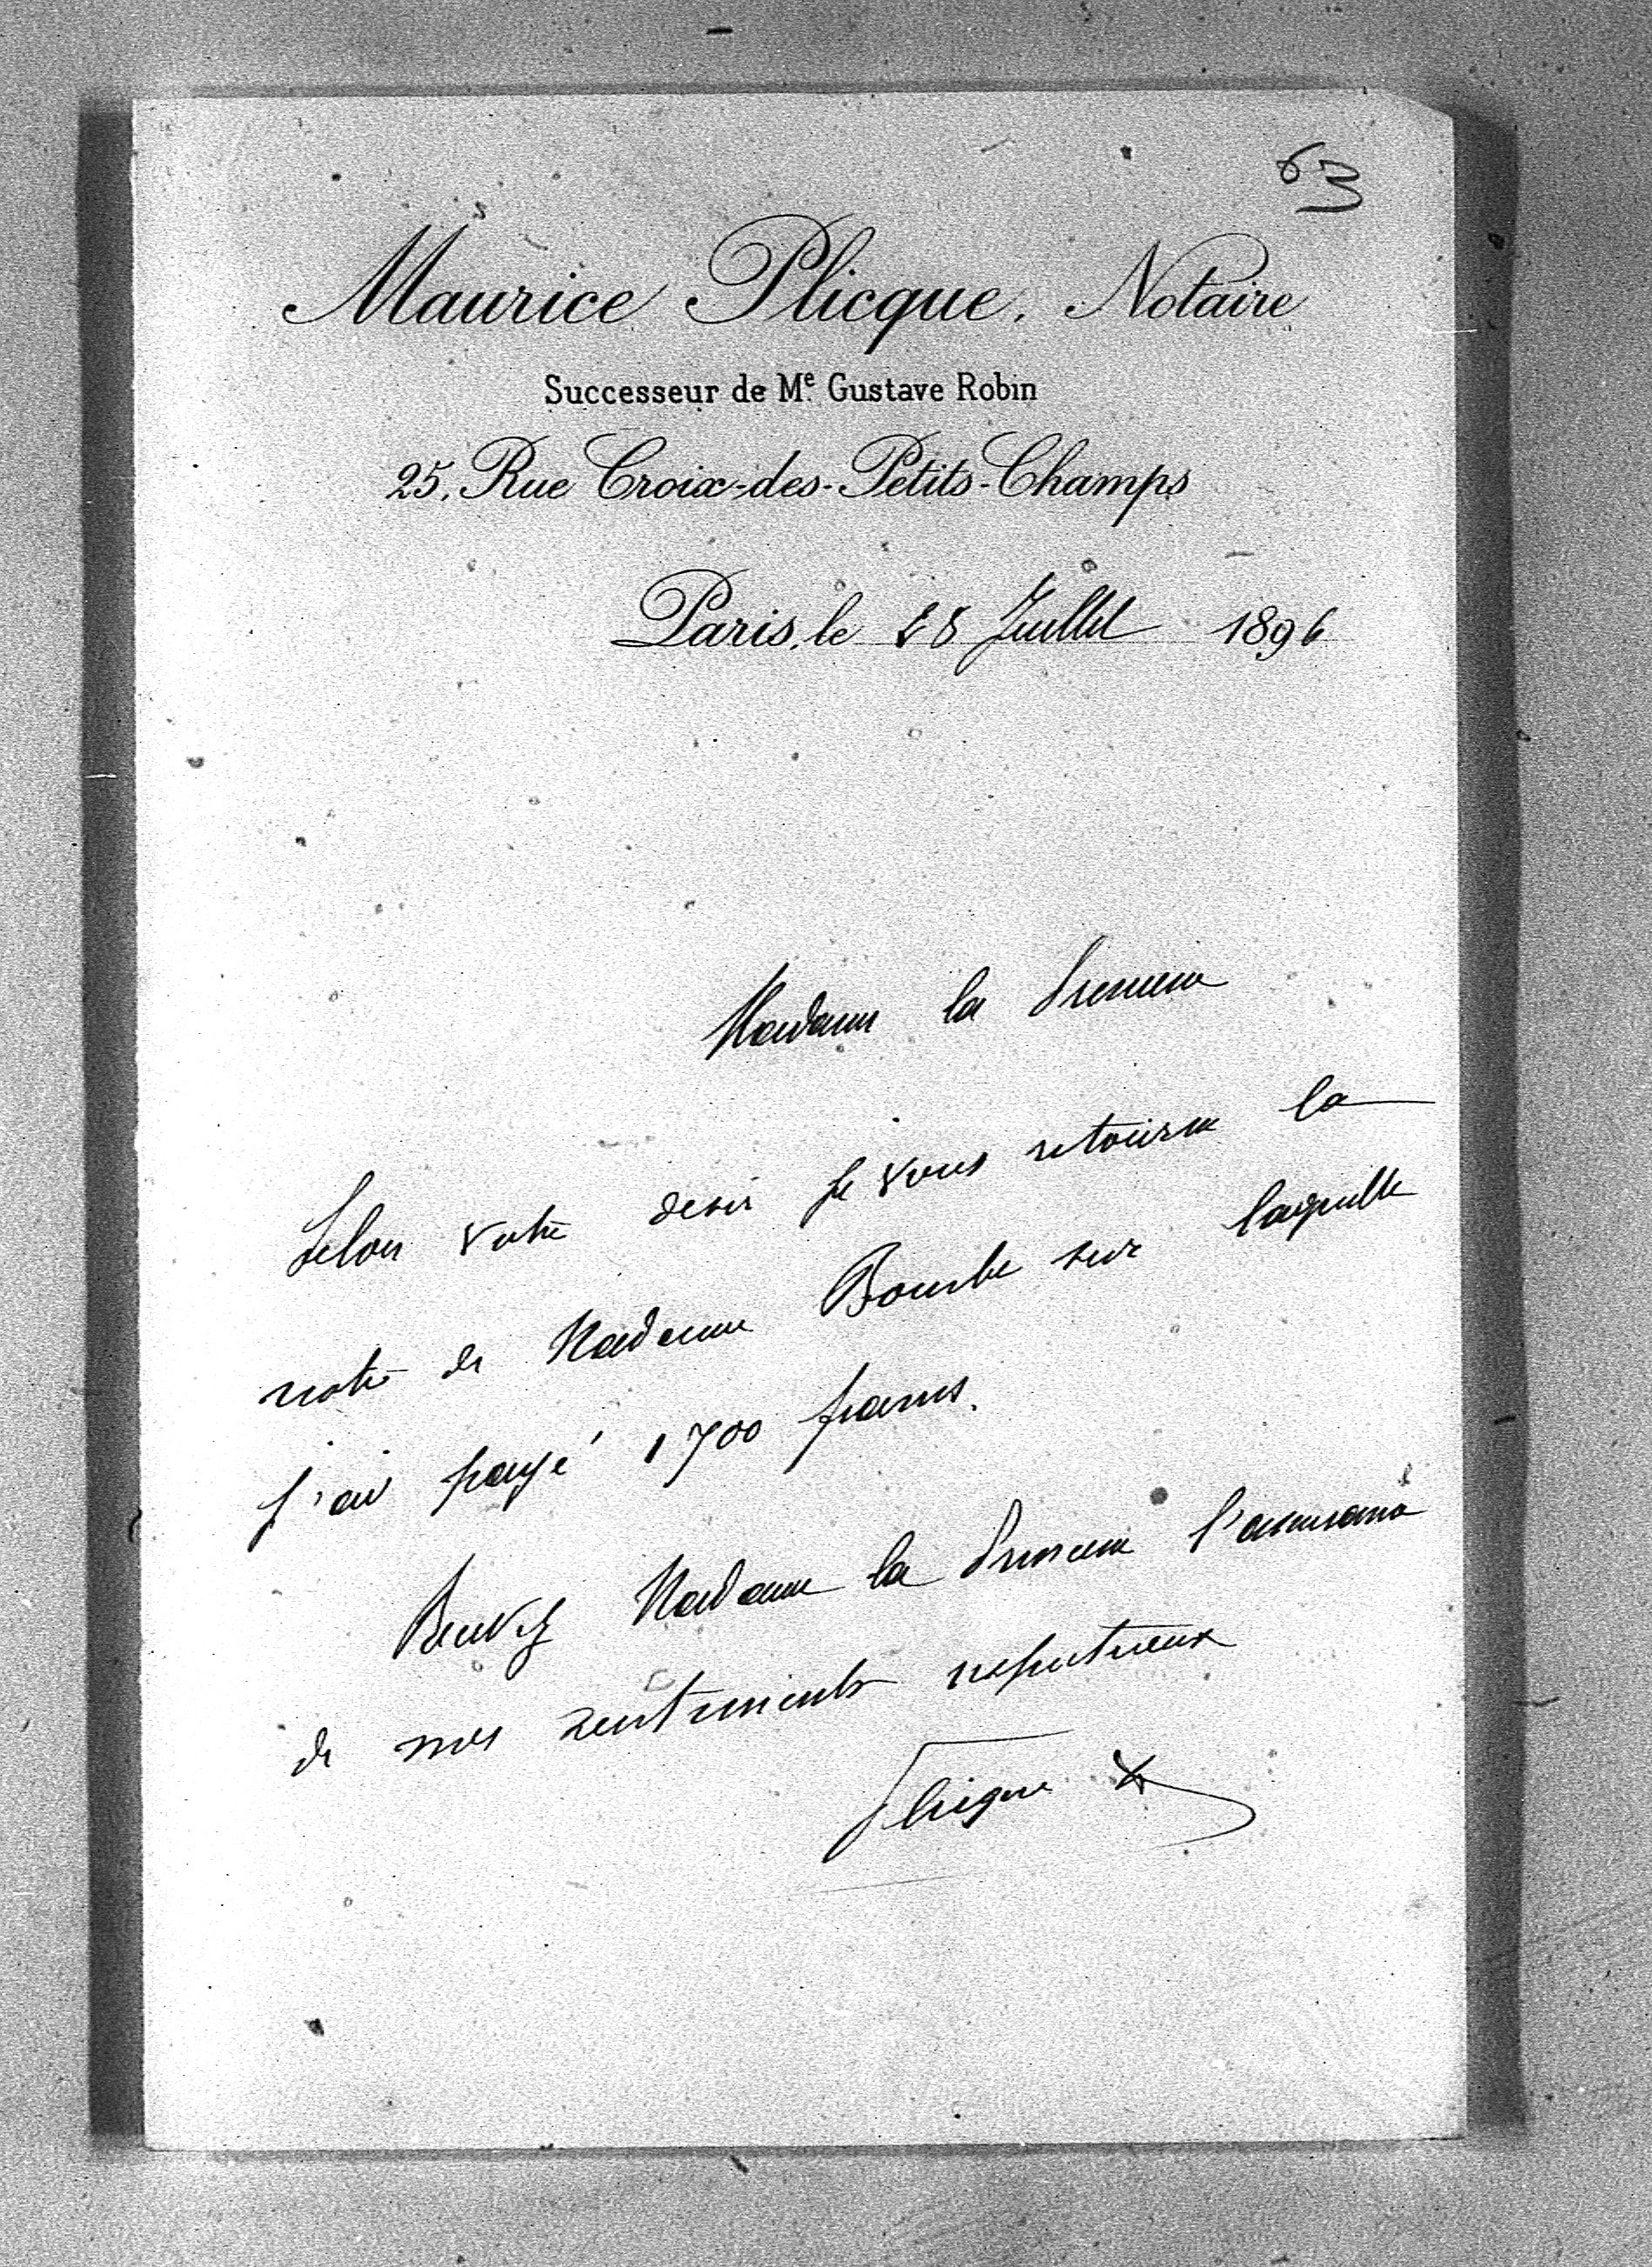 63
Maurice Plicque, Notaire
Successeur de Mᵉ Gustave Robin
25, Rue Croix-des-Petits-Champs
Paris, le 28 Juillet 1896
Madame la Princesse
Selon votre désir je vous retourne la
note de Madame sur laquelle
j'ai payé 1700 francs.
Recevez Madame la Princesse l'assurance
de mes sentiments respectueux
Plicque